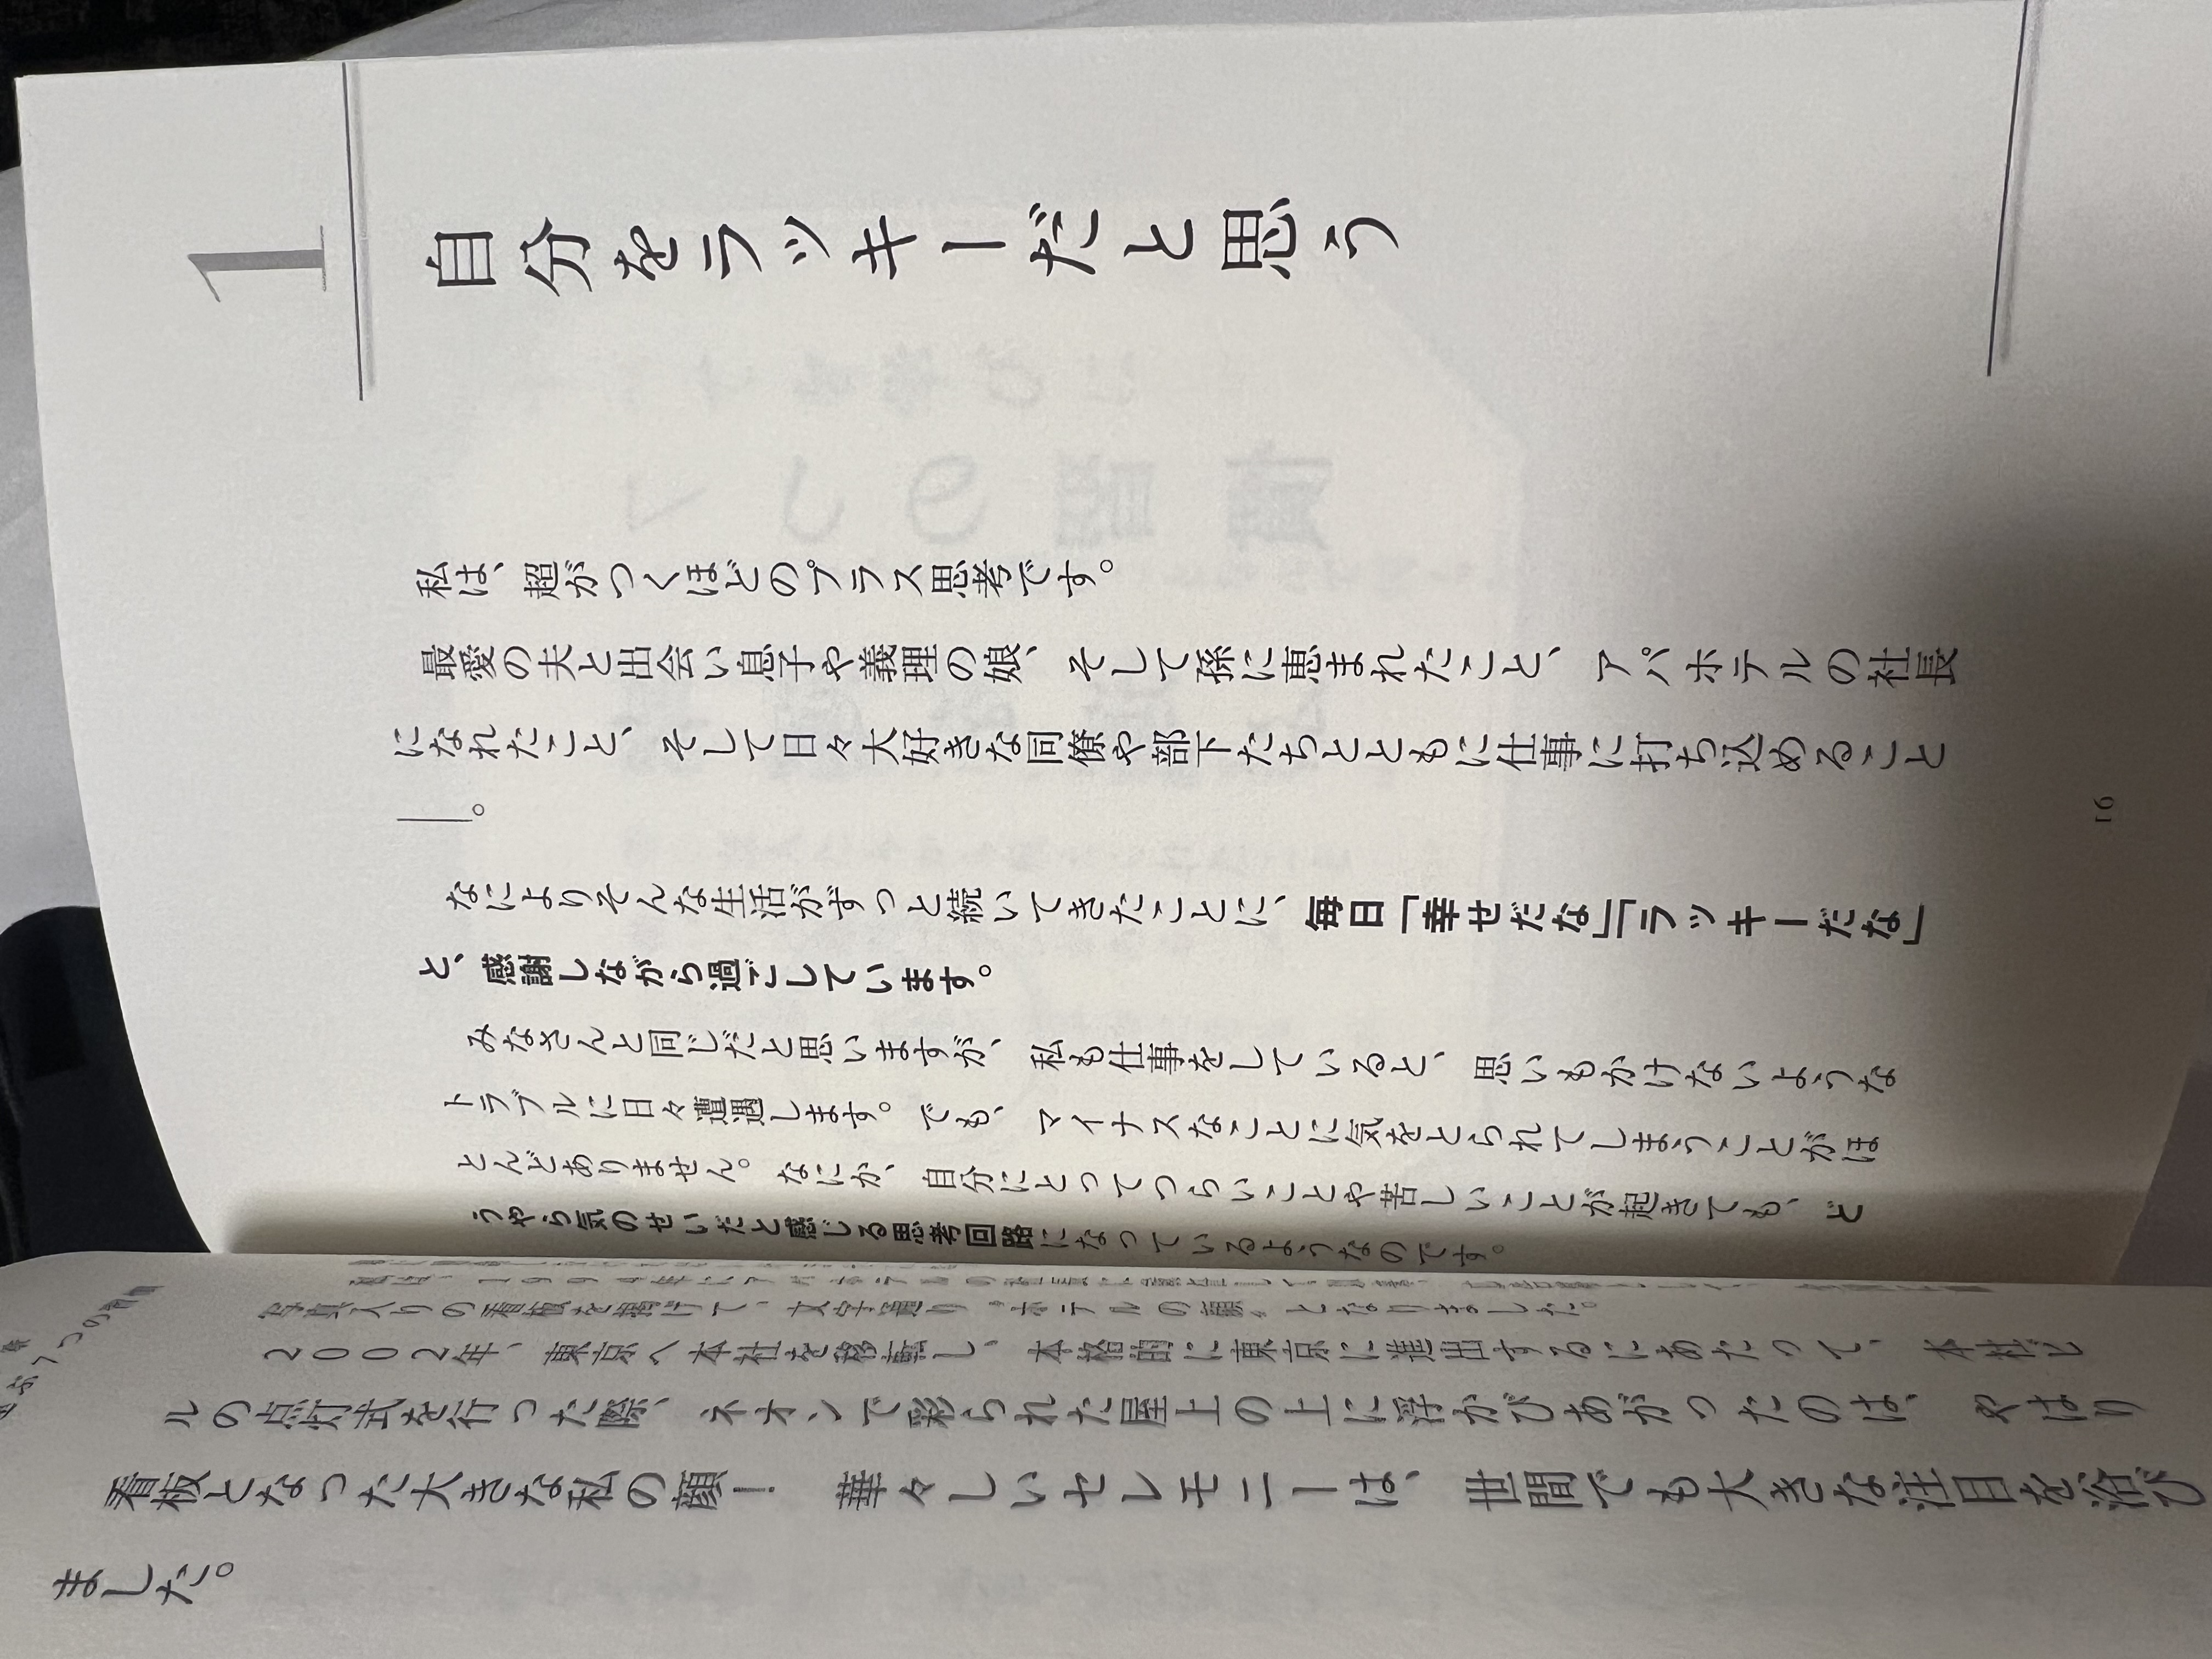 1
自分をラッキーだと思う
私は、超がつくほどのプラス思考です。
最愛の夫と出会い息子や義理の娘、そして孫に恵まれたこと、アパホテルの社長
になれたこと、そして日々大好きな同僚や部下たちとともに仕事に打ち込めること
―。
なによりそんな生活がずっと続いてきたことに、毎日「幸せだな」「ラッキーだな」
と、感謝しながら過ごしています。
みなさんと同じだと思いますが、私も仕事をしていると、思いもかけないような
トラブルに日々遭遇します。でも、マイナスなことに気をとられてしまうことがほ
とんどありません。なにか、自分にとってつらいことや苦しいことが起きても、ど
うやら気のせいだと感じる思考回路になっているようなのです。
16
写真入りの看板を掲げて、文字通り〝ホテルの顔〟となりました。
2002年、東京へ本社を移転し、本格的に東京に進出するにあたって、本社ビ
ルの点灯式を行った際、ネオンで彩られた屋上の上に浮かびあがったのは、やはり
看板となった大きな私の顔! 華々しいセレモニーは、世間でも大きな注目を浴び
ました。